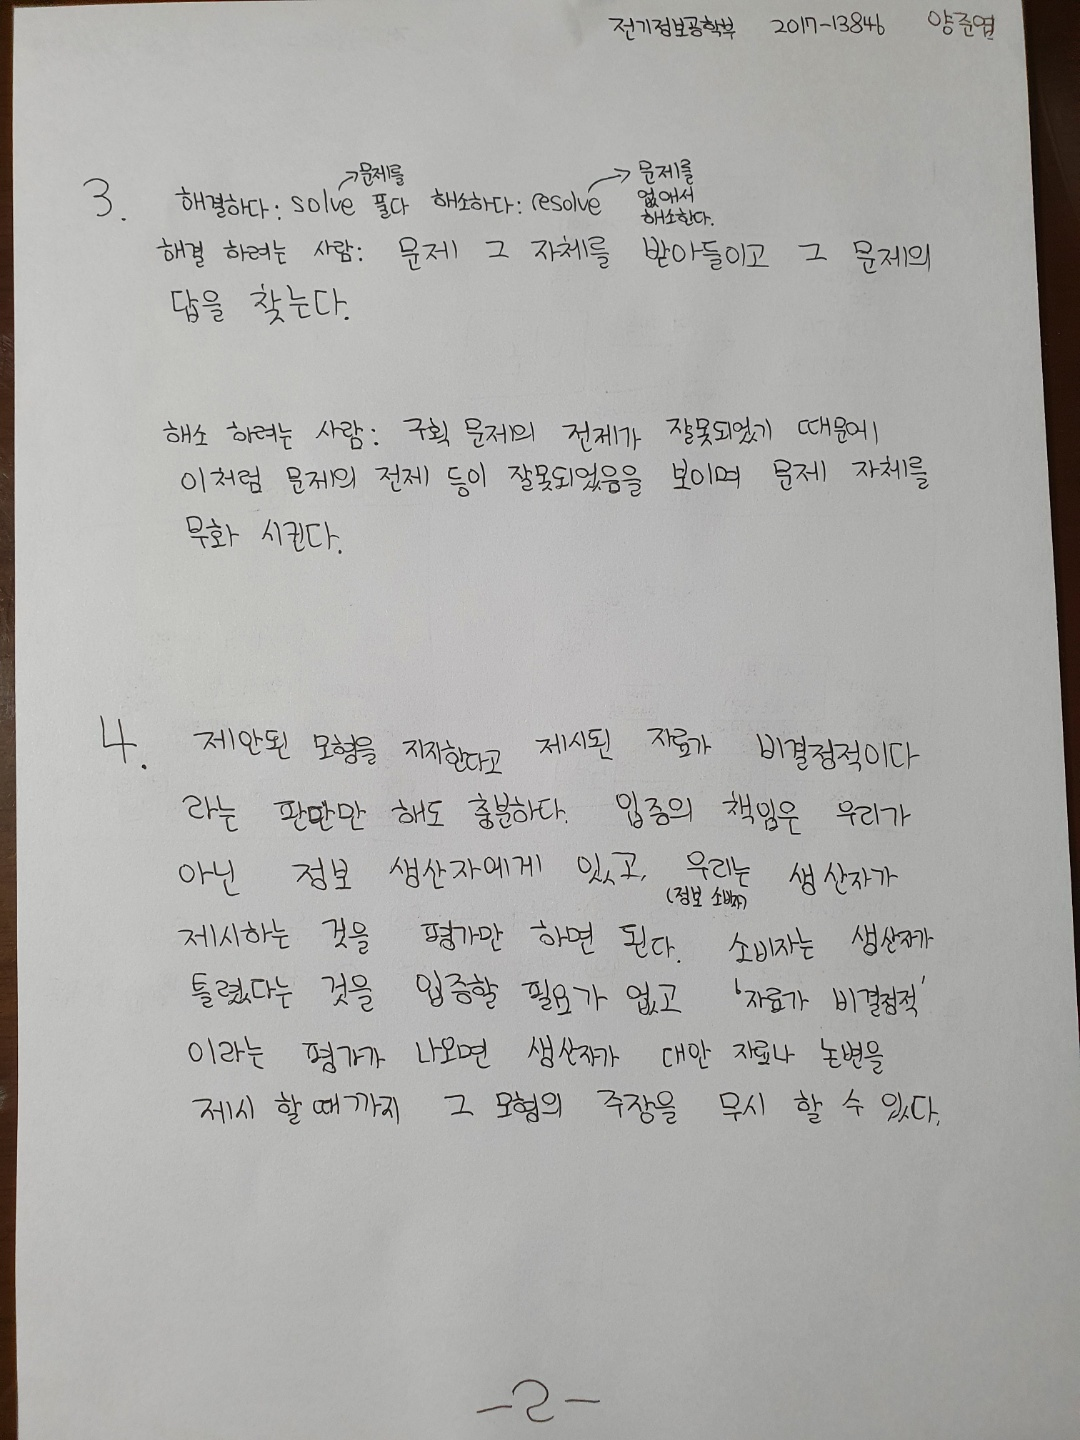 전기정보공학부 2017-13846 양준엽
3. 해결하다: solve → 문제를 풀다 해소하다: resolve → 문제를 없애서 해소한다.
해결 하려는 사람: 문제 그 자체를 받아들이고 그 문제의
답을 찾는다.
해소 하려는 사람: 구획 문제의 전제가 잘못되었기 때문에
이처럼 문제의 전제 등이 잘못되었음을 보이며 문제 자체를
무화 시킨다.
4. 제안된 모형을 지지한다고 제시된 자료가 비결정적이다
라는 판단만 해도 충분하다. 입증의 책임은 우리가
아닌 정보 생산자에게 있고, 우리는 (정보 소비자) 생산자가
제시하는 것을 평가만 하면 된다. 소비자는 생산자가
틀렸다는 것을 입증할 필요가 없고 '자료가 비결정적'
이라는 평가가 나오면 생산자가 대안 자료나 논변을
제시 할 때까지 그 모형의 주장을 무시 할 수 있다.
-2-